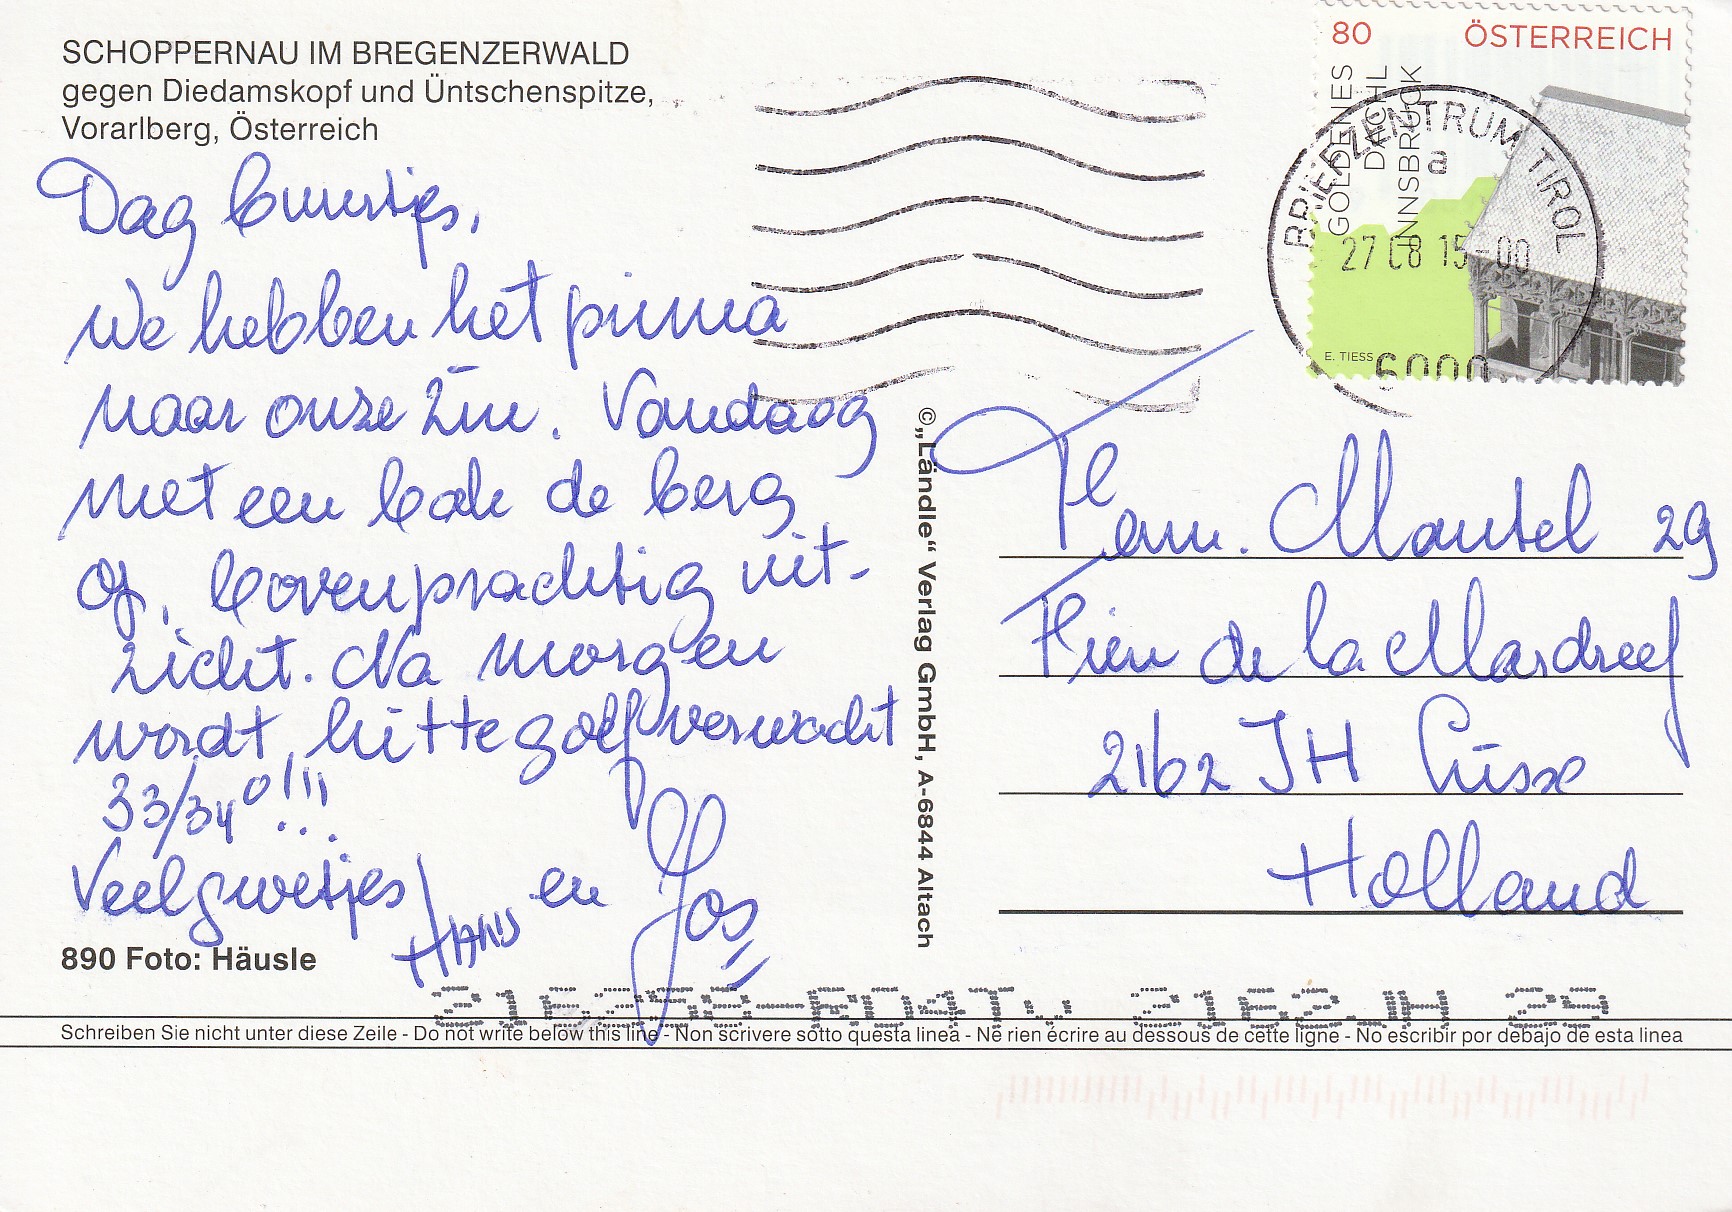 SCHOPPERNAU IM BREGENZERWALD
gegen Diedamskopf und Üntschenspitze,
Vorarlberg, Österreich
Dag buurtjes,
We hebben het prima
naar onze zin. Vandaag
met een bak de berg
op, boven prachtig uit-
zicht. Na morgen
wordt hittegolf verwacht
33/34°!!!
Veel groetjes
HANS en Jos
890 Foto: Häusle
80 ÖSTERREICH
GOLDENES
DACHL
INNSBRUCK
E. TIESS
BRIEFZENTRUM TIROL
a
27 08 15-00
6000
©„Ländle“ Verlag GmbH, A-6844 Altach
Fam. Mantel 29
Pien de la Mardreef
2162 JH Lisse
Holland
2162JH 29
Schreiben Sie nicht unter diese Zeile - Do not write below this line - Non scrivere sotto questa linea - Ne rien écrire au dessous de cette ligne - No escribir por debajo de esta linea